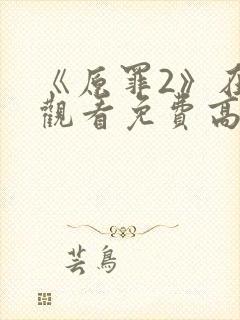 《原罪2》在
觀看免費高
芸鳥